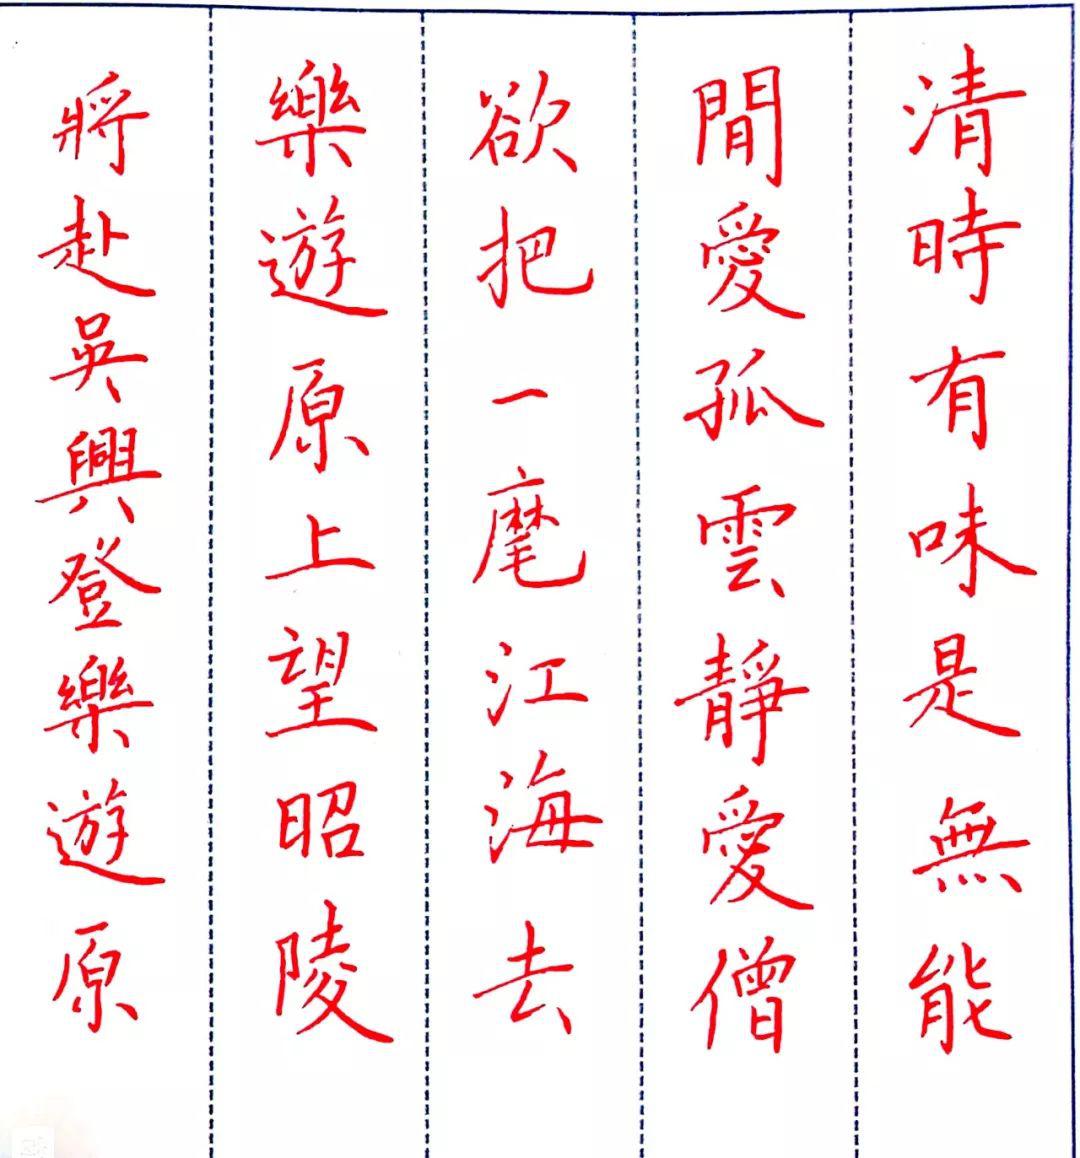 清時有味是無能
閒愛孤雲靜愛僧
欲把一麾江海去
樂遊原上望昭陵
將赴吳興登樂遊原